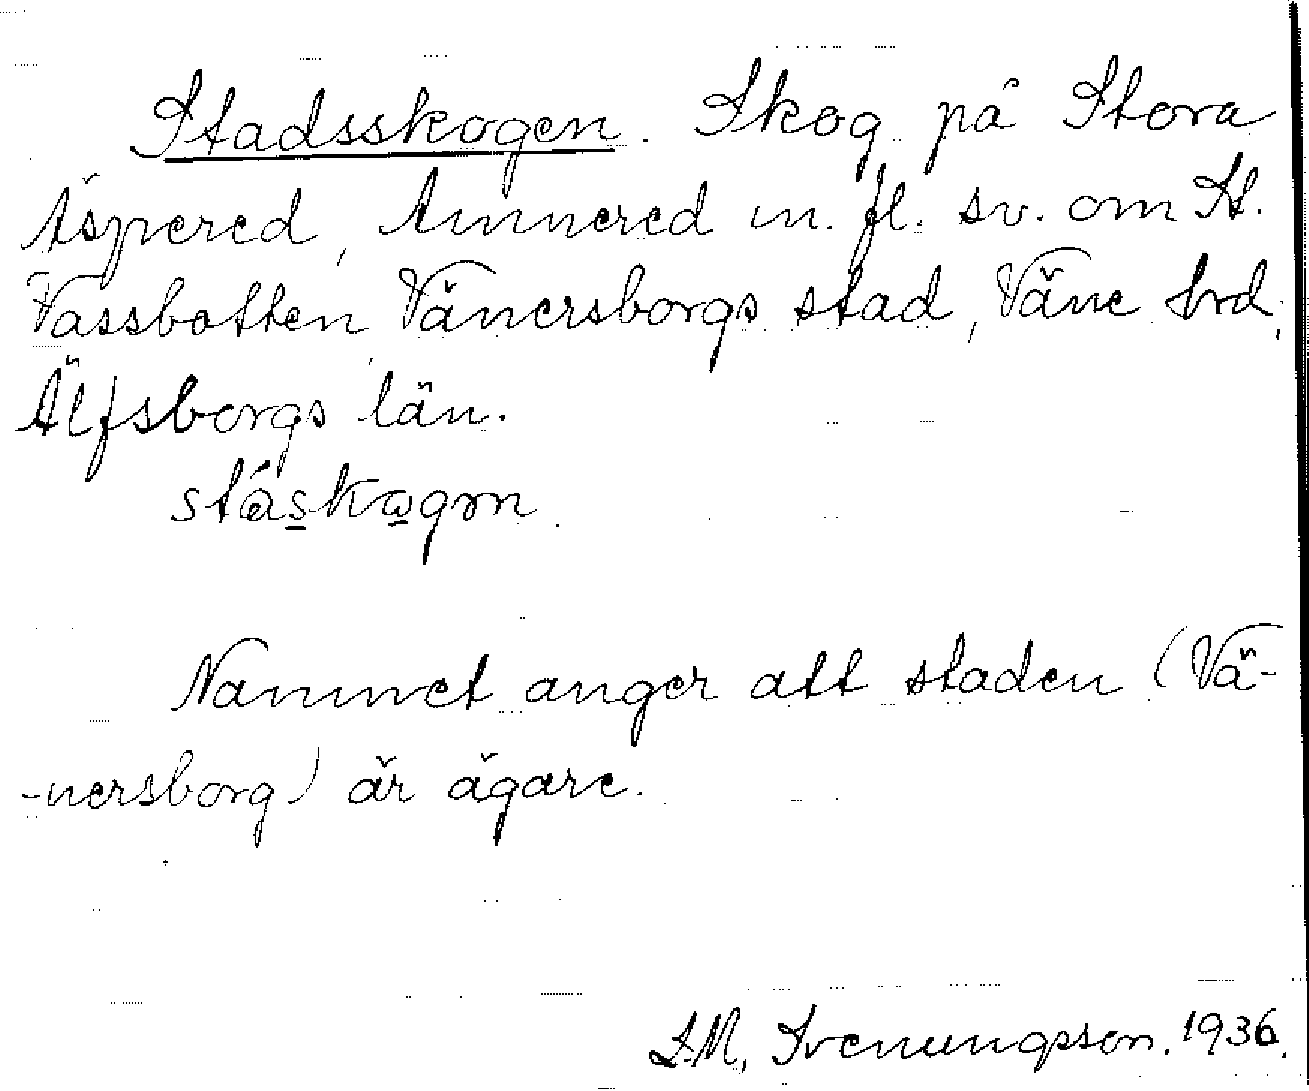 Stadsskogen. Skog på Stora
Äspered, Amnered m. fl. sv. om St.
Vassbotten Vänersborgs stad, Väne hrd,
Älfsborgs län.
stáskogən.
Namnet anger att staden (Vä-
-nersborg) är ägare.
L.M. Svenungsson. 1936.